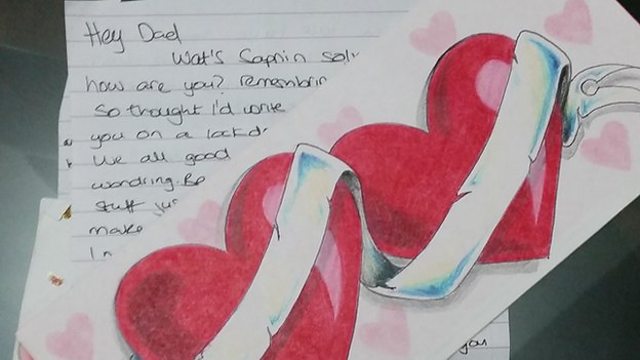 Hey Dad
Wat's Sapnin
how are you? remembrin
So thought I'd write
you on a lockd
We all good
wondring. Be
stuff jus
make
you